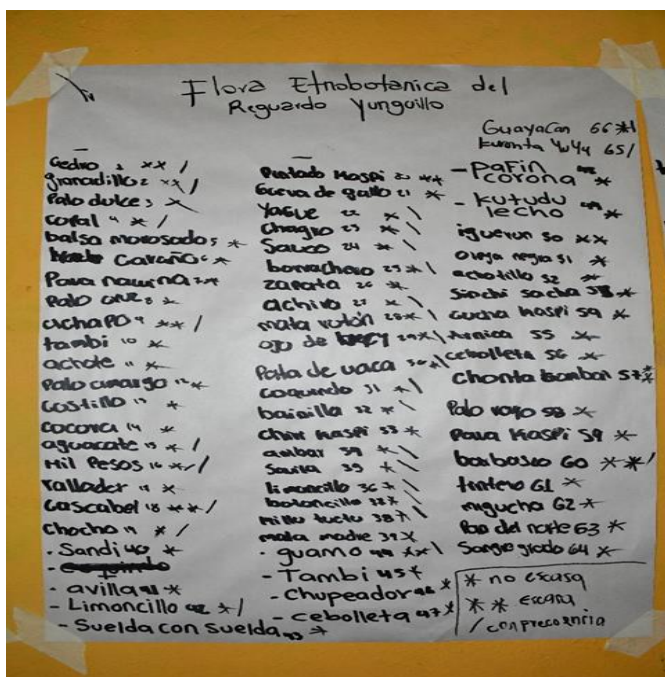 Flora Etnobotanica del
Reguardo Yunguillo
Guayacan 66 *
65 /
Cedro 1 ** /
granadillo 2 ** /
Palo dulce 3 *
coral 4 * /
balsa morosado 5 *
Caraño 6 *
Palo cruz 8 *
achapo 9 ** /
tambi 10 *
achote 11 *
Palo amargo 12 *
costillo 13 *
cocora 14 *
aguacate 15 * /
Mil Pesos 16 * /
rallador 17 *
Cascabel 18 ** /
chocho 19 * /
- Sandi 40 *
- avilla 41 *
- Limoncillo 42 * /
- Suelda con suelda 43 *
Pintado Kaspi 20 **
Gueva de gallo 21 *
Yague 22 * \
chagro 23 * \
Sauco 24 * \
borrachero 25 * \
zapata 26 *
achira 27 * \
mata raton 28 * \
ojo de 29 * \
Pata de vaca 30 * \
coquindo 31 * \
bainilla 32 * \
chiri Kaspi 33 *
ambar 34 * \
Savila 35 * \
limoncillo 36 * \
botoncillo 37 *
38 * \
mala madre 39 *
- guamo 44 ** \
- Tambi 45 *
- Chupeador 46 *
- cebolleta 47 *
- Pafin
corona 48 *
- Kutudu
lecho 49 *
igueron 50 **
oreja negra 51 *
achotillo 52 *
Sinchi sacha 53 *
cucha Kaspi 54 *
Arnica 55 *
cebolleta 56 *
chonta bombon 57 *
Palo rayo 58 *
Pava Kaspi 59 *
barbasco 60 ** /
tintero 61 *
migucha 62 *
Pao del norte 63 *
Sangre grado 64 *
* no escasa
** escasa
/ con presencia